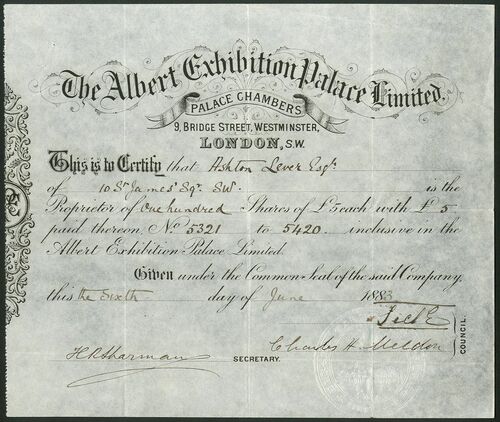 The Albert Exhibition Palace Limited.
PALACE CHAMBERS
9, BRIDGE STREET, WESTMINSTER,
LONDON, S.W.
This is to Certify that Ashton Lever Esqr.
of 10 St. James' Sqr. SW. is the
Proprietor of One hundred Shares of £5 each with £5
paid thereon, No. 5321 to 5420 inclusive in the
Albert Exhibition Palace Limited.
Given under the Common Seal of the said Company,
this the Sixth day of June 1883
Charles H. Meldon
COUNCIL.
SECRETARY.